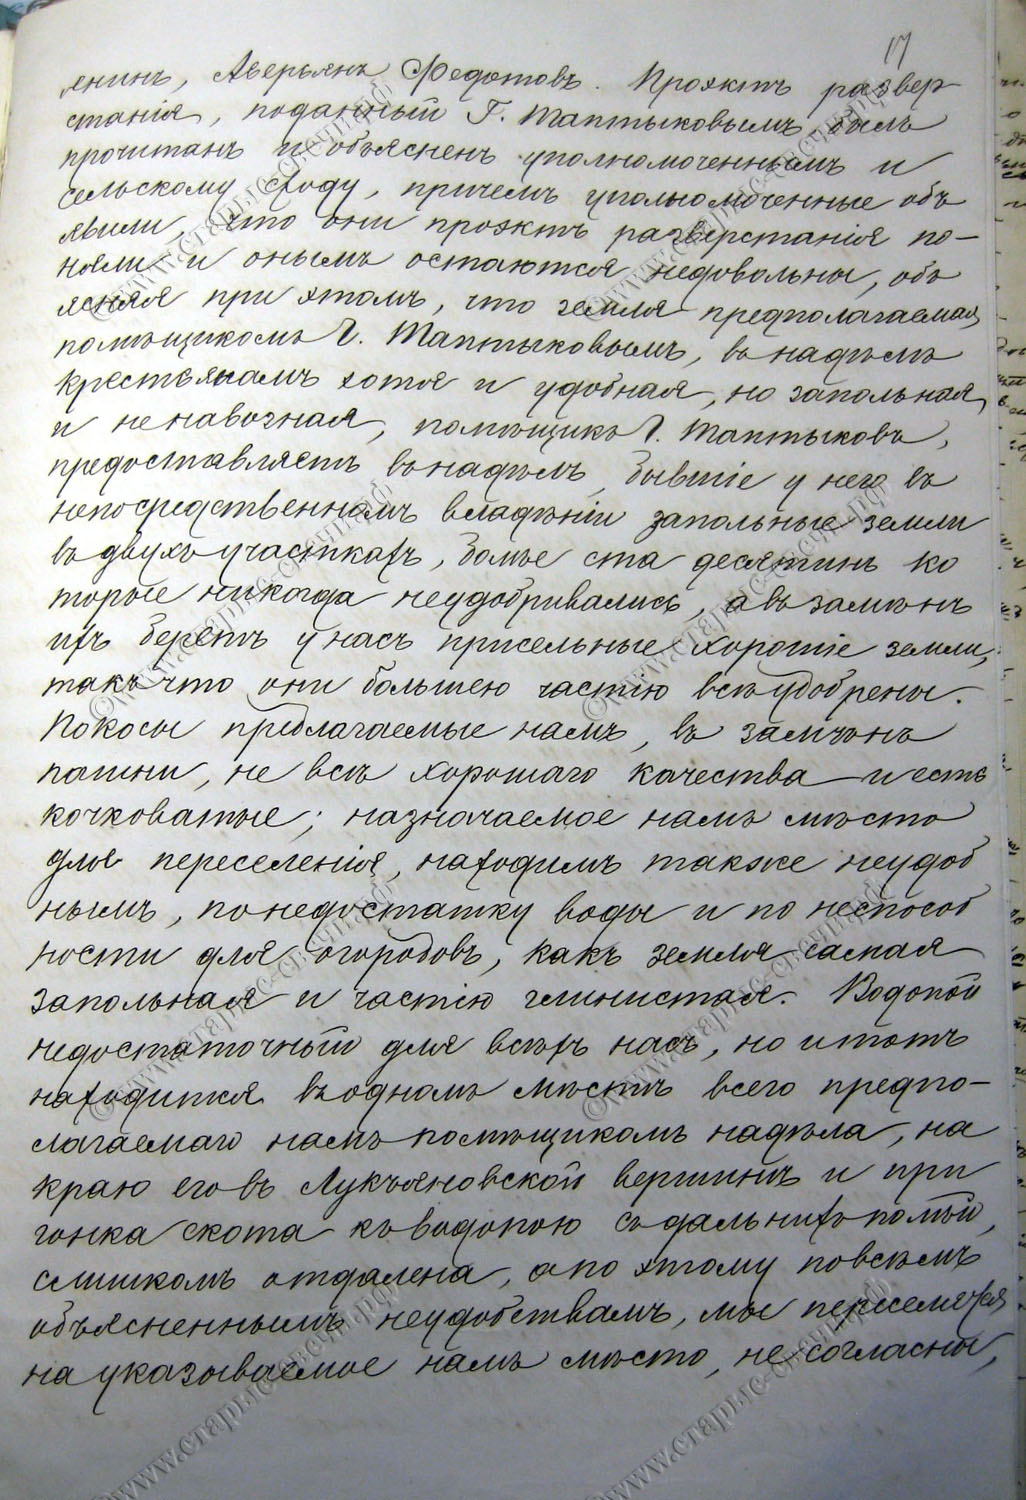 17
янинъ, Аверьянъ Федотовъ. Проэктъ развер
станія, поданный Г. Таптыковымъ, былъ
прочитанъ и объясненъ уполномоченнымъ и
сельскому сходу, причемъ уполномоченные объ
явили, что они проэктъ разверстанія по-
няли и онымъ остаются недовольны, объ
ясняя при этомъ, что земля предполагаемая
помѣщикомъ Г. Таптыковымъ, въ надѣлъ
крестьянамъ хотя и удобная, но запольная
и не навозная, помѣщикъ Г. Таптыковъ,
предоставляетъ въ надѣлъ, бывшіе у него въ
непосредственномъ владѣніи запольные земли
въ двухъ участкахъ, болѣе ста десятинъ ко
торые никогда неудобривались, а въ замѣнъ
ихъ беретъ у насъ присельные хорошіе земли,
такъ что они большею частію всѣ удобрены.
Покосы предлагаемые намъ, въ замѣнъ
пашни, не всѣ хорошаго качества и есть
кочковатые; назначаемое намъ мѣсто
для переселенія, находимъ также неудоб
нымъ, по недостатку воды и по неспособ
ности для огородовъ, какъ земля самая
запольная и частію глинистая. Водопой
недостаточный для всѣхъ насъ, но и тотъ
находится въ одномъ мѣстѣ всего предпо-
лагаемаго намъ помѣщикомъ надѣла, на
краю его въ Лукъяновской вершинѣ и при
гонка скота къ водопою съ дальнихъ полѣй,
слишкомъ отдалена, а по этому по всѣмъ
объясненнымъ неудобствамъ, мы переселяться
на указываемое намъ мѣсто, не согласны,
©www.старые-свечи.рф
©www.старые-свечи.рф
©www.старые-свечи.рф
©www.старые-свечи.рф
©www.старые-свечи.рф
©www.старые-свечи.рф
©www.старые-свечи.рф
©www.старые-свечи.рф